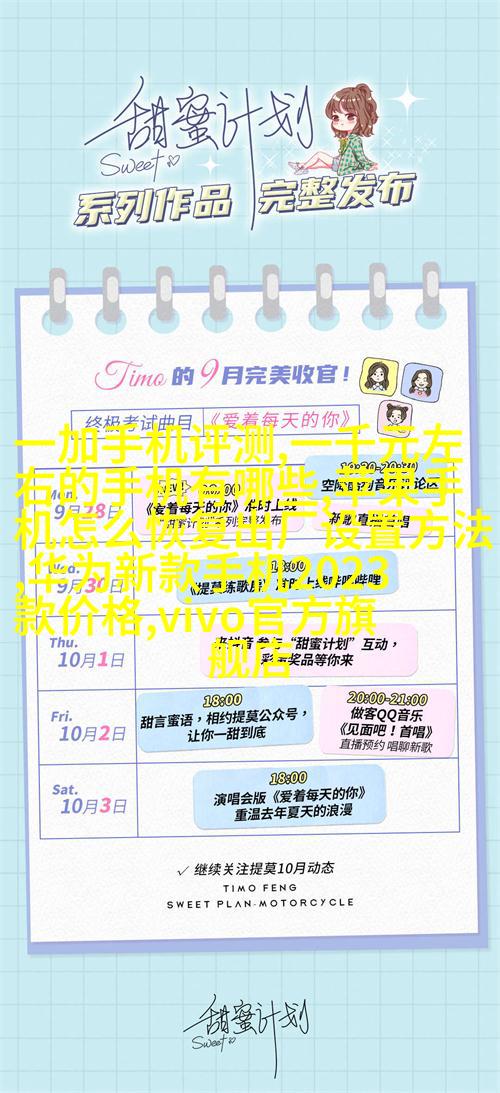 甜蜜计划
Sweet
系列作品 完整发布
Timo的9月完美收官！
终极考试曲目 《爱着每天的你》
一加手机评测,一千元左
右的手机有哪些,苹果手
机怎么恢复出厂设置方法
,华为新款手机2023
款价格,vivo官方旗
舰店
Mon.
9月28日
《爱着每天的你》准时上线
Wed.
9月30日
Thu.
10月1日
“甜蜜计划”互动，
奖品等你来
Fri.
10月2日
18:00
甜言蜜语，相约提莫公众号，
让你一甜到底
20:00-21:00
做客QQ音乐
《见面吧！首唱》
直播预约 唱聊新歌
Sat.
10月3日
18:00
演唱会版《爱着每天的你》
重温去年夏天的浪漫
✓ 继续关注提莫10月动态
TIMO FENG
SWEET PLAN-MOTORCYCLE
甜蜜计划
Sweet